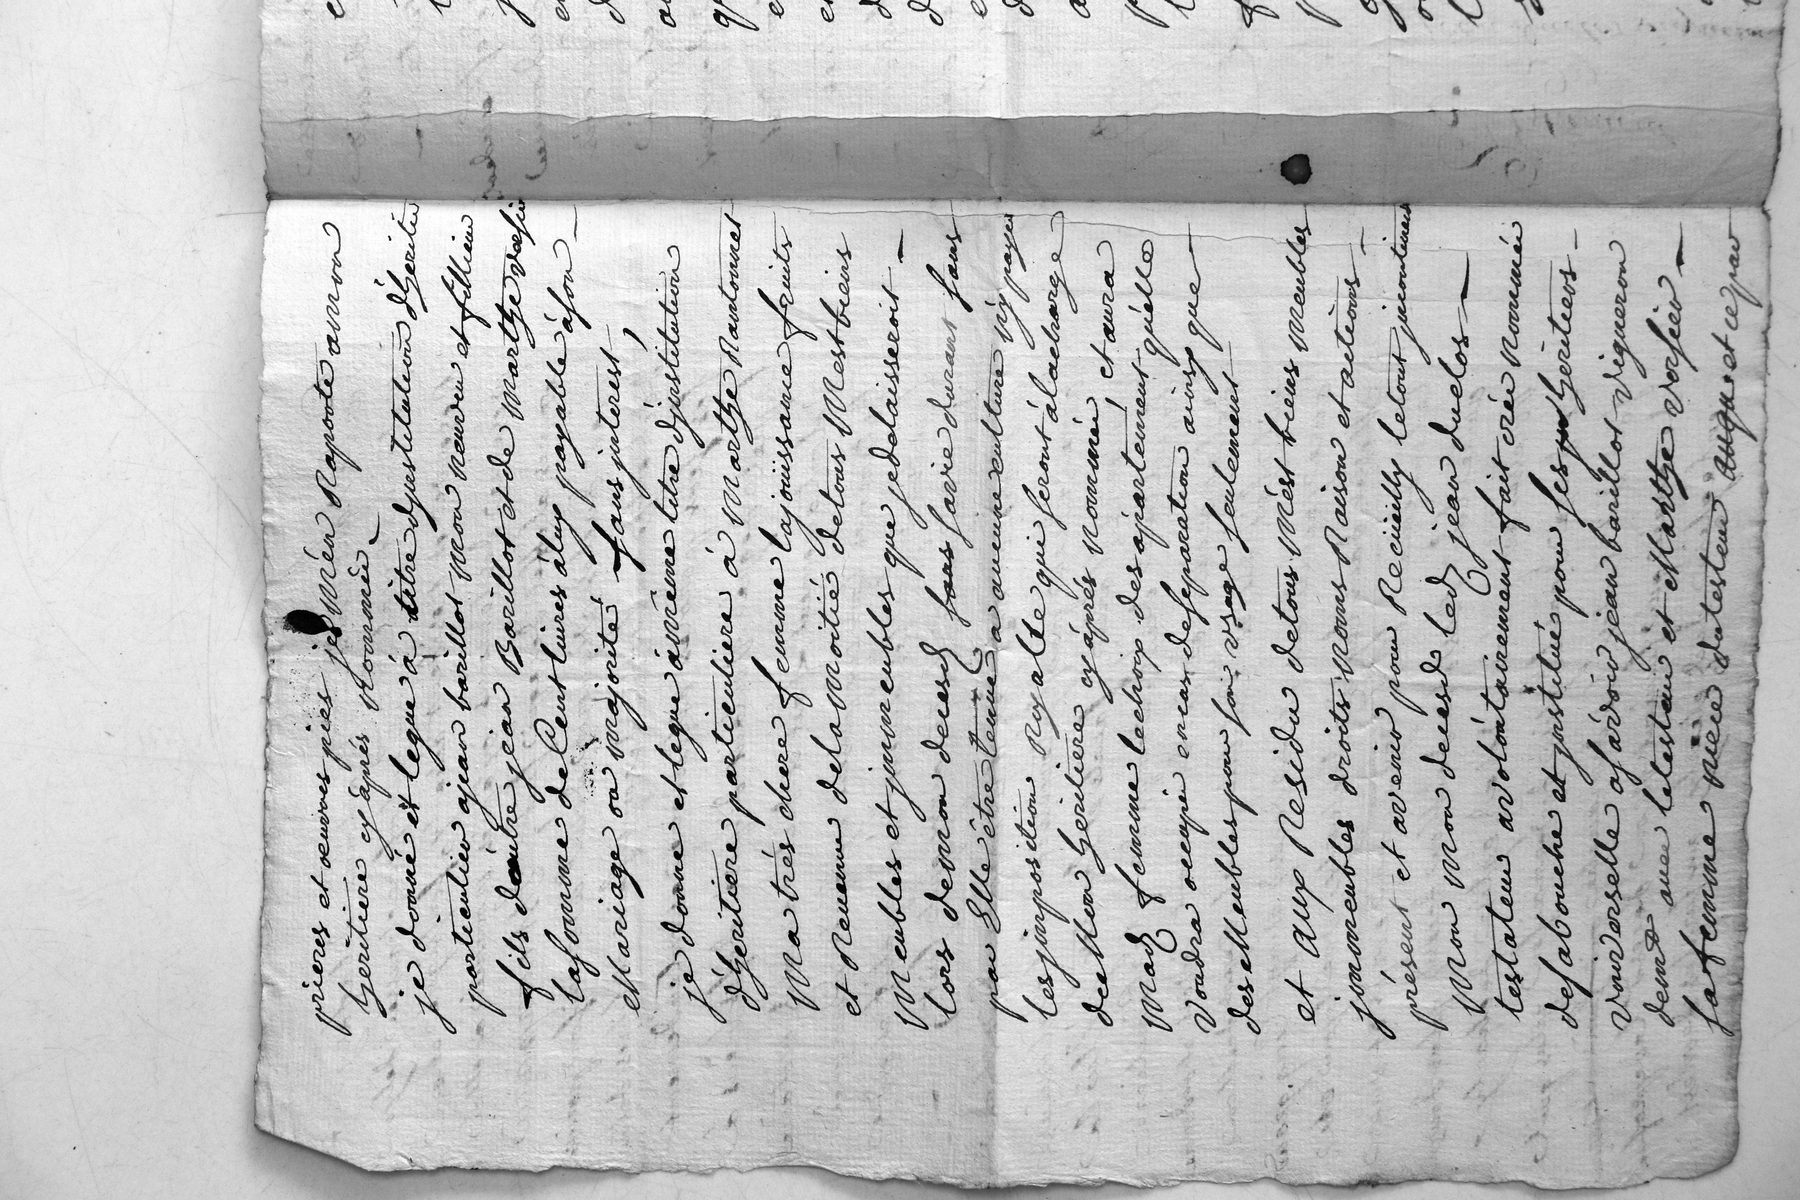 prieres et oeuvres pies je Mén Raporte amon
heritiere cy áprés Nommée
je donne et legue á titre djnstitution dheritier
particulier ajean barillot Mon neuveu et fillieu
fils dentre jean Barillot et de Marthe Versie
lasomme de Cent livres áluy payable áson
Mariage ou Majorité sans jnterest
je donne et legue áméme titre djnstitution
dheritiere particuliere á Marthe
Ma trés chere femme lajouissance fruits
et Revenu delamoitié detous Mest biens
Meubles et jmmeubles que jedelaisseroit
lors demon deceds sa vie durant sans
par Elle étre tenue a aucune culture ny payer
les jmposition Royalle qui seront álacharge
decellem heritiere cyáprés nommée et aura
Mad femme lechoix des apartement quelle
voudra occupée encas deseparation ainsy que
des Meubles pour son usage seulement
et aux Residu detous Mést biens meubles
jmmeubles droits noms Raison et actions
présent et avenir pour Recüeilly letout jncontinent
Mon Mon deceds led jean duclos
testateur avolontairement fait crée nommée
desabouche et jnstitué pour ses heritiers
universelle asávoir jean barillot vigneron
demt avec letesteur et Marthe Versier
safemme niéce dutesteur et ce par